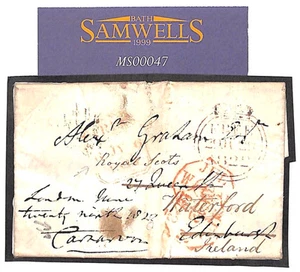 BATH
SAMWELLS
1999
MS00047
Alexr Graham Esqr
Royal Scots
27 Queen St
London June
twenty ninth 1822
Waterford
Carnarvon
Edinburgh
Ireland